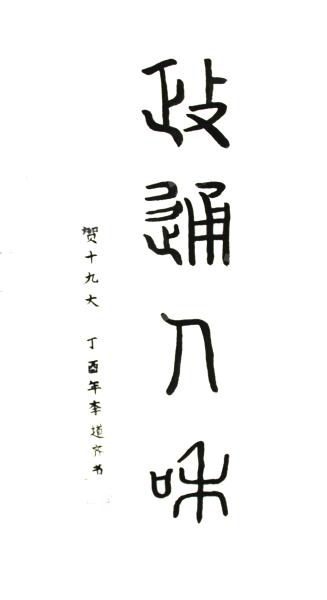 政通人和
贺十九大 丁酉年李道方书